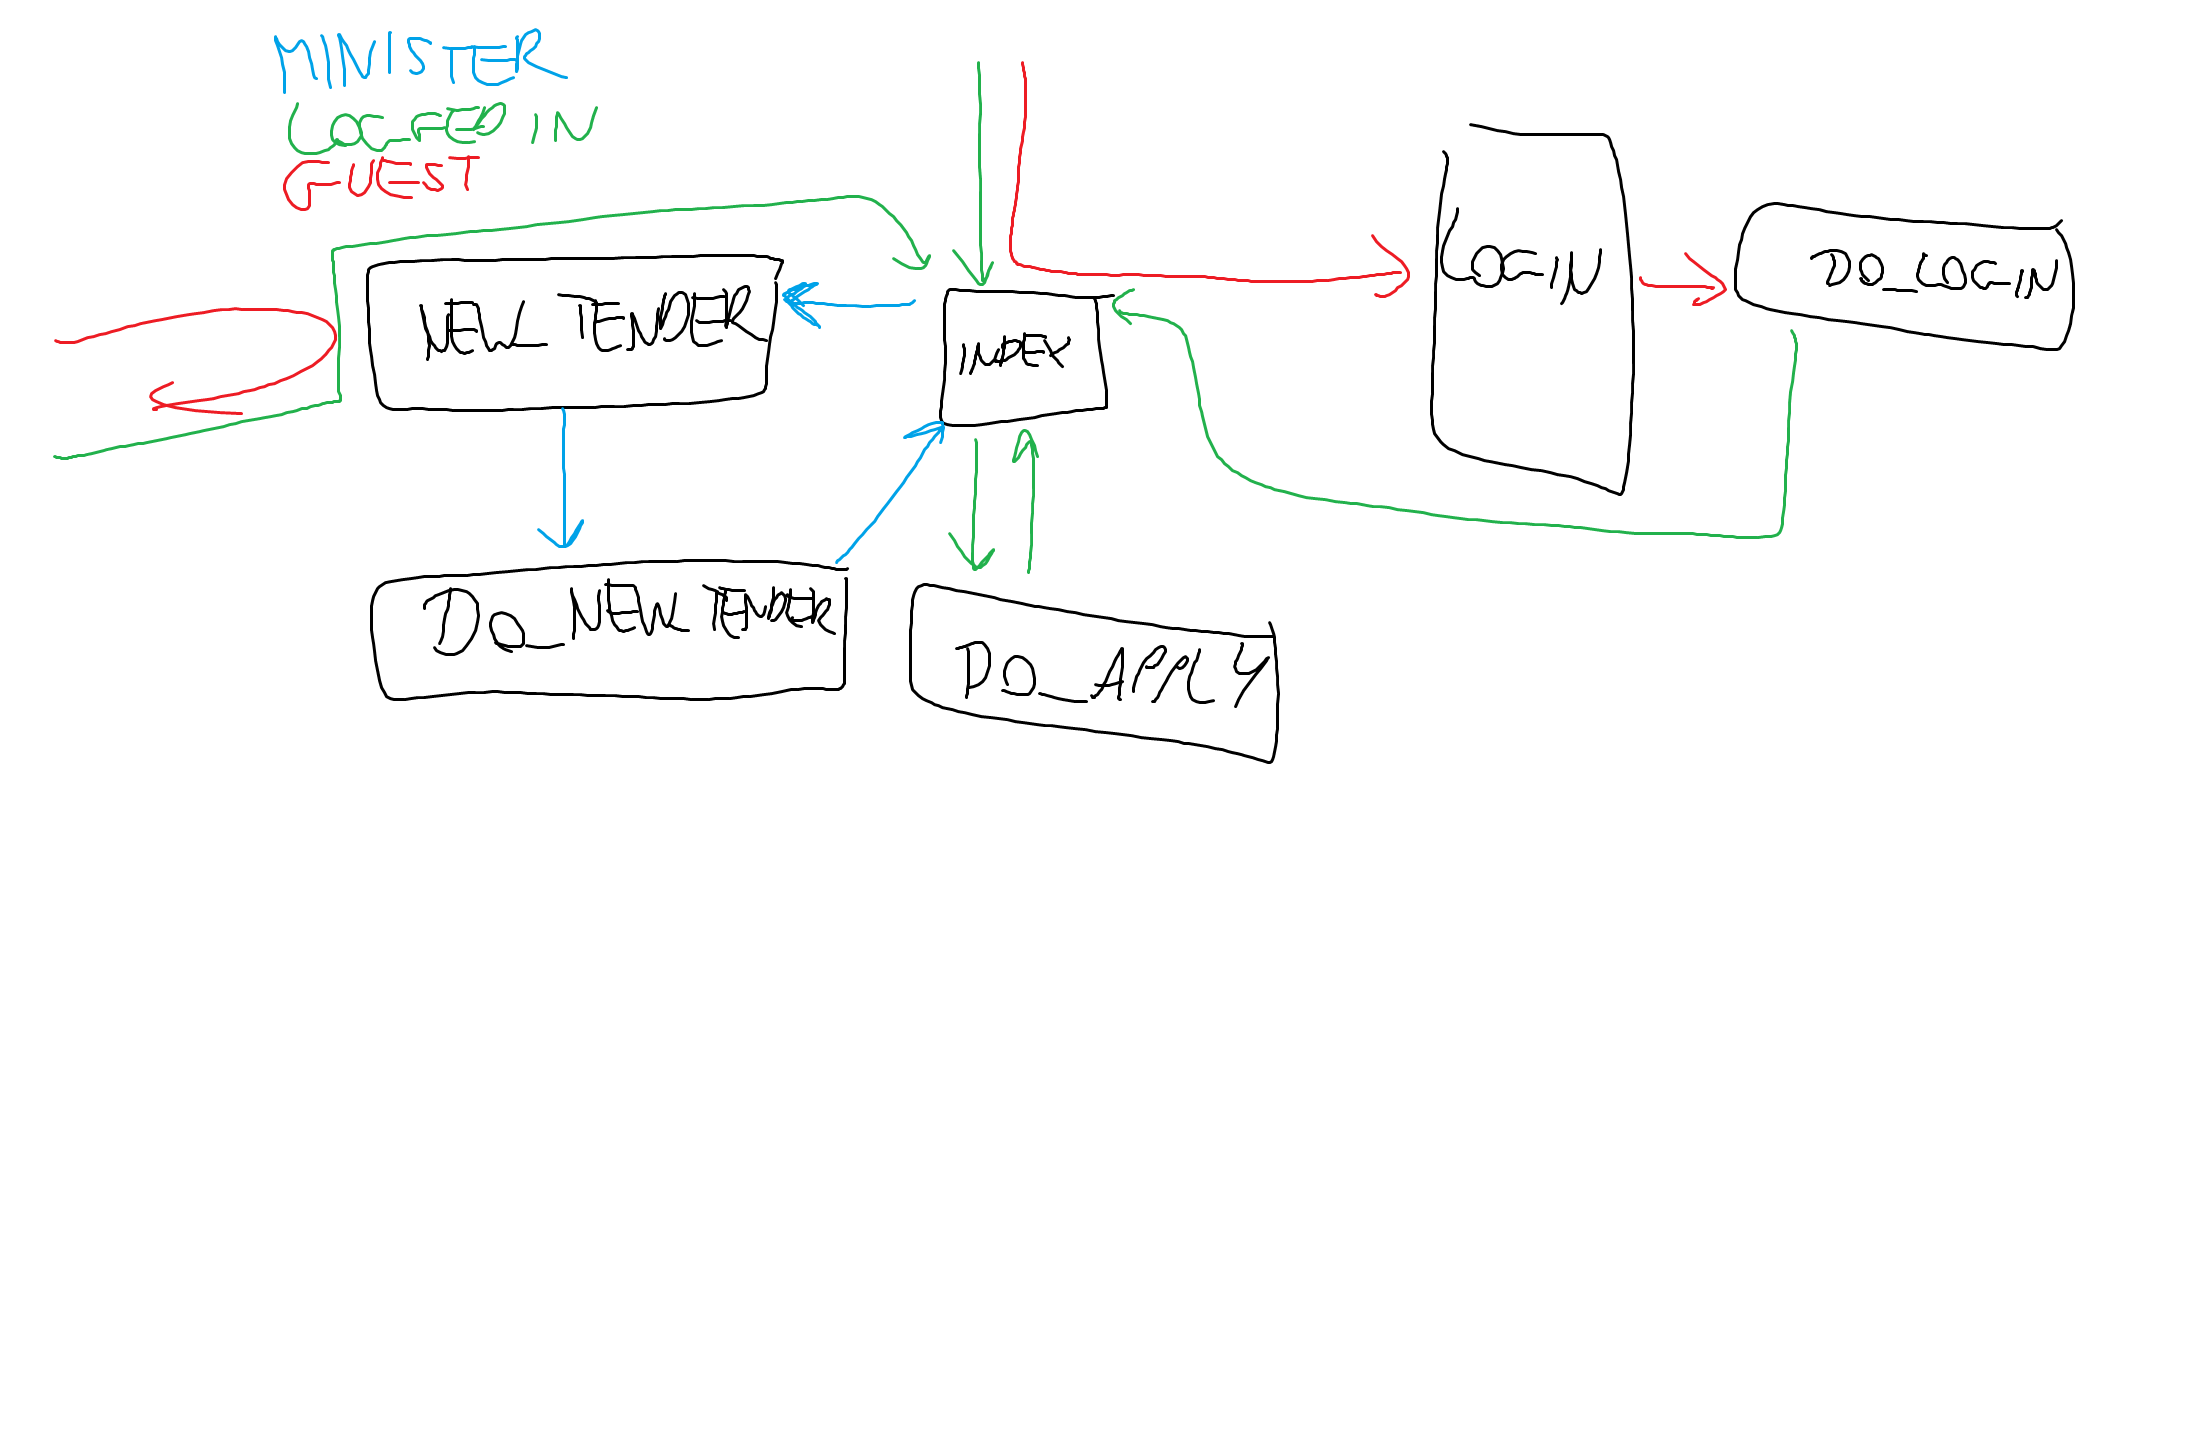 MINISTER
LOGGED IN
GUEST
NEW_TENDER
INDEX
LOGIN
DO_LOGIN
DO_NEW TENDER
DO_APPLY